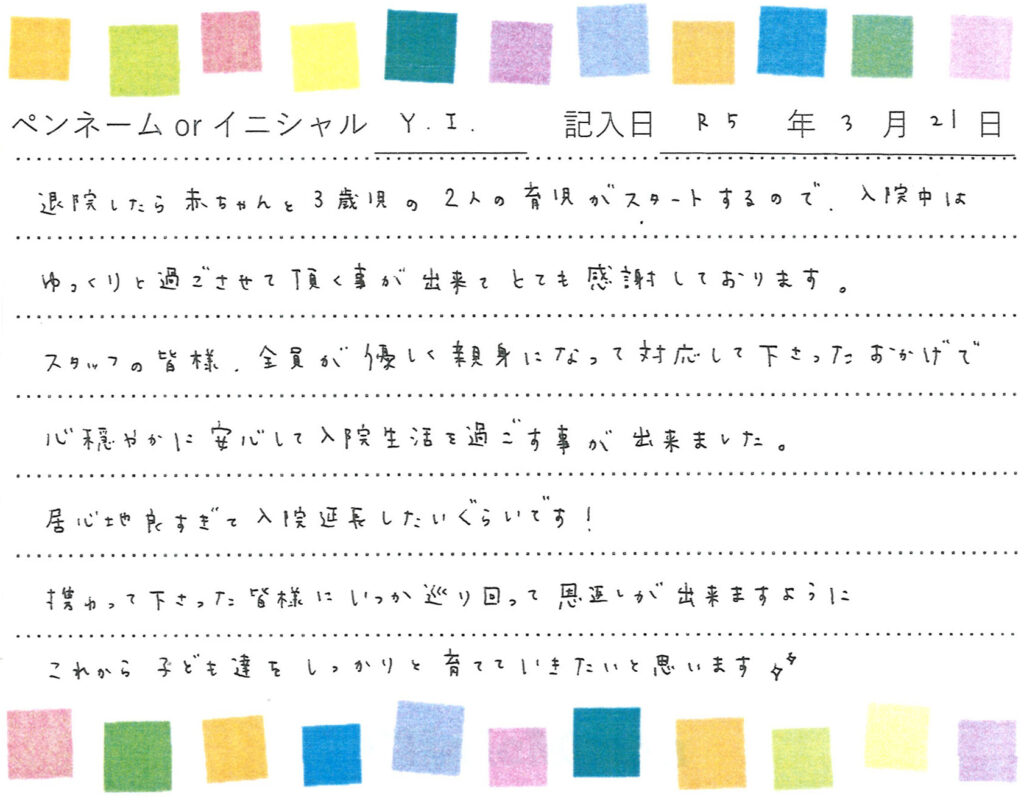 ペンネーム or イニシャル Y.I. 記入日 R5年3月21日
退院したら赤ちゃんと3歳児の2人の育児がスタートするので、入院中は
ゆっくりと過ごさせて頂く事が出来てとても感謝しております。
スタッフの皆様、全員が優しく親身になって対応して下さったおかげで
心穏やかに安心して入院生活を過ごす事が出来ました。
居心地良すぎて入院延長したいぐらいです!
携わって下さった皆様にいつか巡り回って恩返しが出来ますように
これから子ども達をしっかりと育てていきたいと思います